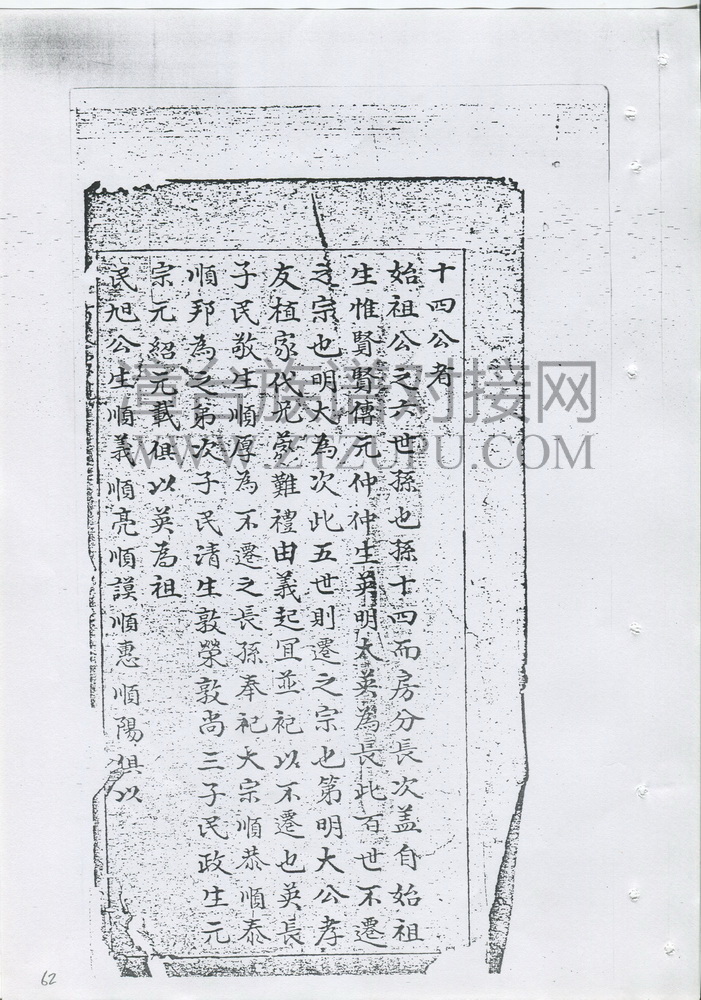 十四公者
始祖公之六世孫也孫十四而房分長次盖自始祖
生惟賢賢傳元仲仲生英明大英為長此百世不遷
之宗也明大為次此五世則遷之宗也第明大公孝
友植家代兄蒙難禮由義起冝並祀以不遷也英長
子民敬生順厚為不遷之長孫奉祀大宗順恭順泰
順邦為之第次子民清生敦榮敦尚三子民政生元
宗元紹元載俱以英為祖
民旭公生順義順亮順謨順惠順陽俱以
漳台族谱对接网
WWW.ZTZUPU.COM
62